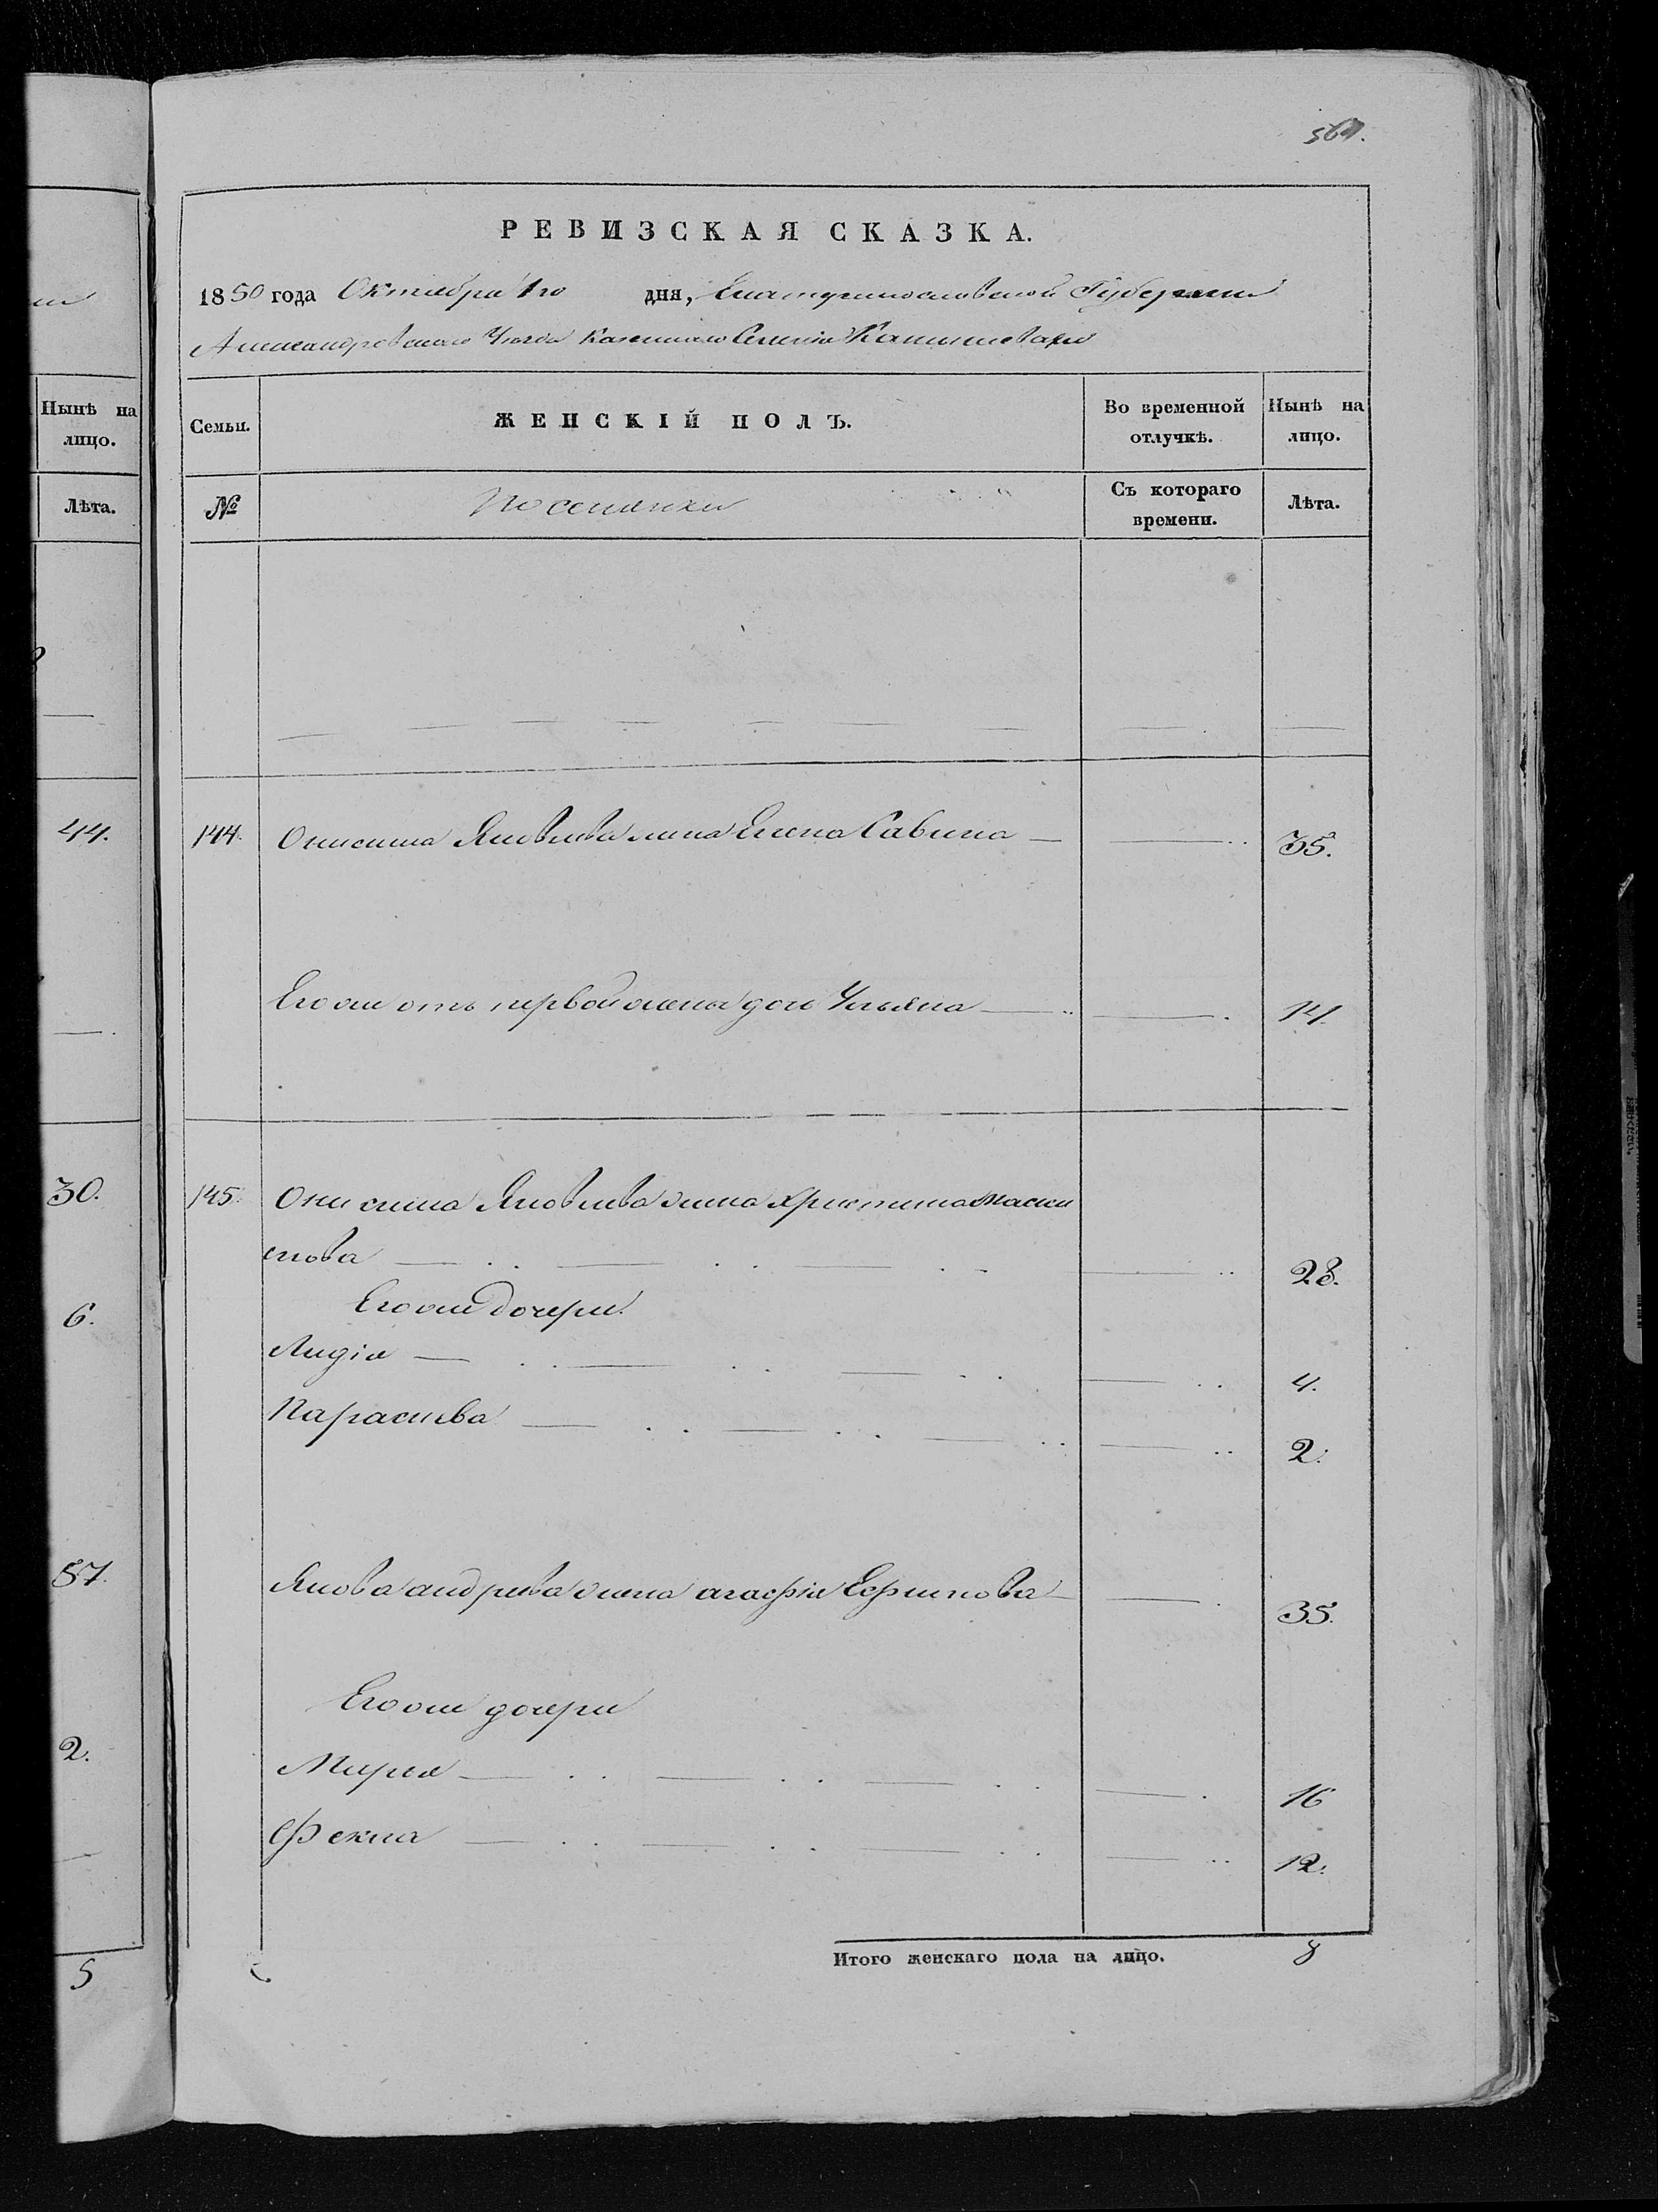 564.
ии
Нынѣ на
лицо.
Лѣта.
44.
30.
6.
57.
2.
5
РЕВИЗСКАЯ СКАЗКА.
1850 года Октября 1го дня, Екатеринославской Губернии
Александровскаго Уезда Казеннаго Селенія Камышевахи
Семьи. ЖЕНСКІЙ ПОЛЪ. Во временной отлучкѣ. Нынѣ на лицо.
№ Поселянки Съ котораго времени. Лѣта.
144. Онисима Яковлева жена Елена Савина 35.
Егоже отъ первой жены дочь Ульяна 14.
145. Онисима Яковлева жена Христина Макси
мова 23.
Егоже дочери
Лидія 4.
Параскева 2.
Якова Андреева жена Агафія Ефимова 35.
Егоже дочери
Марья 16
Фекла 12.
Итого женскаго пола на лицо. 8